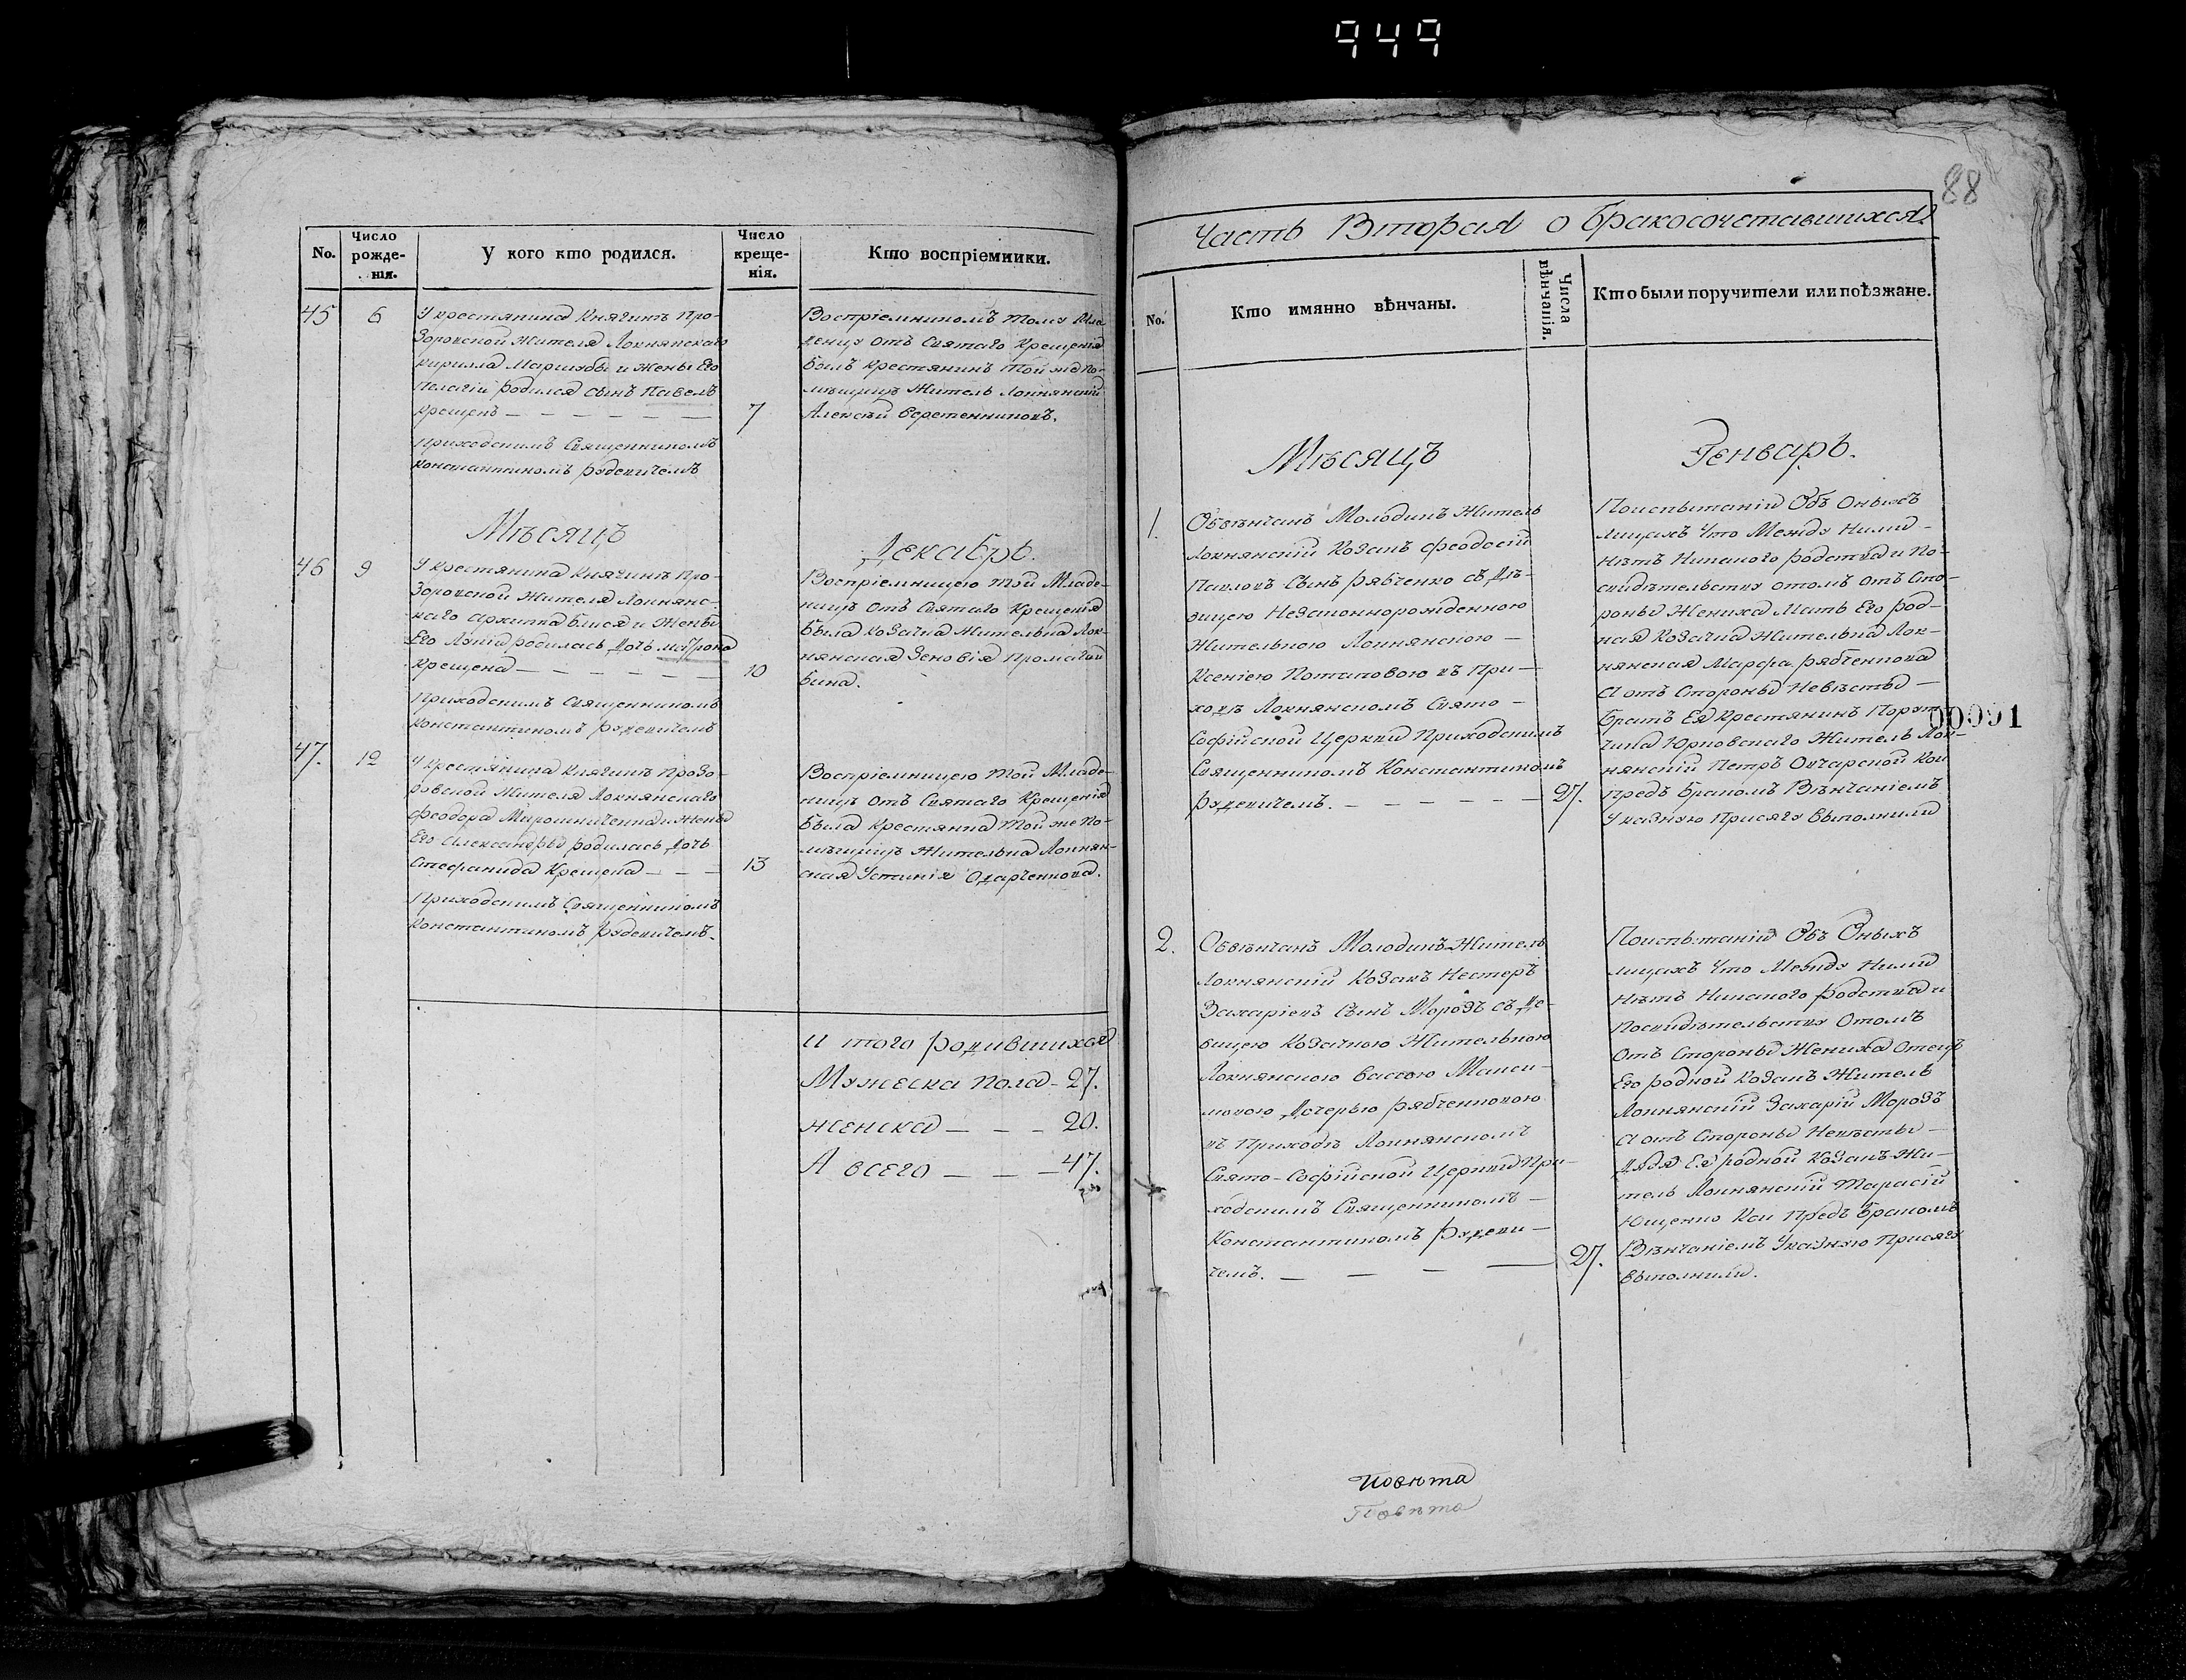 949
No.
Число рожде-нія.
У кого кто родился.
Число креще-нія.
Кто воспріемники.
45
6
У крестянина Княгинѣ Про-
Зоровской Жителя Локнянскаго
Кирилла Маршубы и Жены Его
Пелагіи родился сынъ Павелъ
Крещенъ — — — — — —
7
приходскимъ Священникомъ
Константиномъ Рудевичемъ
Воспріемникомъ Тому Мла
денцу отъ Святаго Крещенія
былъ Крестянинъ Той же По-
мѣщицѣ Житель Локнянскій
Алексѣй Веретенниковъ.
Мѣсяцъ
Декабрь.
46
9
У крестянина Княгинѣ Про-
Зоровской Жителя Локнянс-
каго Архиппа Блися и Жены
Его родилась Дочь Матрона
Крещена — — — — — —
10
Приходскимъ Священникомъ
Константиномъ Рудевичемъ
Воспріемницею той Младе-
ницѣ отъ Святаго Крещенія
была Козачка Жителька Лок-
нянская Зеновія
бина.
47.
12
У Крестянина Княгинѣ Прозо-
ровской Жителя Локнянскаго
Феодора Мирошниченка и Жены
Его Александры родилась Дочь
Стефанида Крещена — — —
13
Приходскимъ Священникомъ
Константиномъ Рудевичемъ.
Воспріемницею той Младе-
ницѣ отъ Святаго Крещенія
была Крестянка той же По-
мѣщицѣ Жителька Локнян-
ская Устинія Одарченкова.
И того родившихся
Мужеска пола - 27.
женска — — — 20.
А всего — — — 47.
88
Часть Вторая о бракосочетавшихся.
No.
Кто имянно вѣнчаны.
Числа вѣнчанія.
Кто были поручители или поѣзжане.
Мѣсяцъ
Генварь.
1.
Обвѣнчанъ Молодикъ Житель
Локнянскій Козакъ Феодосій
Павловъ Сынъ Рябченко съ Дѣ-
вицею Незаконнорожденною
Жителькою Локнянскою —
Ксеніею Потаповою въ При-
ходѣ Локнянскомъ Свято -
Софійской Церкви Приходскимъ
Священникомъ Константиномъ
Рудевичемъ. — — — — — —
27.
Поиспытаніи Объ Оныхъ
лицахъ Что Между Ними -
Нѣтъ Никакого родства и По-
свидѣтельству отомъ отъ Сто-
роны Жениха Мать Его род-
ная Козачка Жителька Лок-
нянская Марфа Рябченкова
А отъ Стороны Невѣсты —
братъ Ея Крестянинъ Порут
чика Юрковскаго Житель Лок-
нянскій Петръ Овчарской Кои
предъ бракомъ Вѣнчаніемъ
Указную Присягу выполнили
00091
2.
Обвѣнчанъ Молодикъ Житель
Локнянскій Козакъ Нестеръ
Захаріевъ Сынъ Морозъ съ Де-
вицею Козачкою Жителькою
Локнянскою Вассою Макси-
мовою Дочерью Рябченковою
въ Приходѣ Локнянскомъ
Свято - Софійской Церкви При-
ходскимъ Священникомъ —
Константиномъ Рудеви —
чемъ. — — — —
27.
Поиспытаніи Объ Оныхъ
лицахъ Что Между Ними
Нѣтъ Никакого родства и
Посвидѣтельству Отомъ
Отъ Стороны Жениха Отецъ
Его родной Козакъ Житель
Локнянскій Захарій Морозъ
А отъ Стороны Невѣсты —
Дядя Ея родной Козакъ Жи-
тель Локнянскій Тарасій
Ющенко Кои Предъ бракомъ
Вѣнчаніемъ Указную Присягу
выполнили.
Повѣта
Повѣта